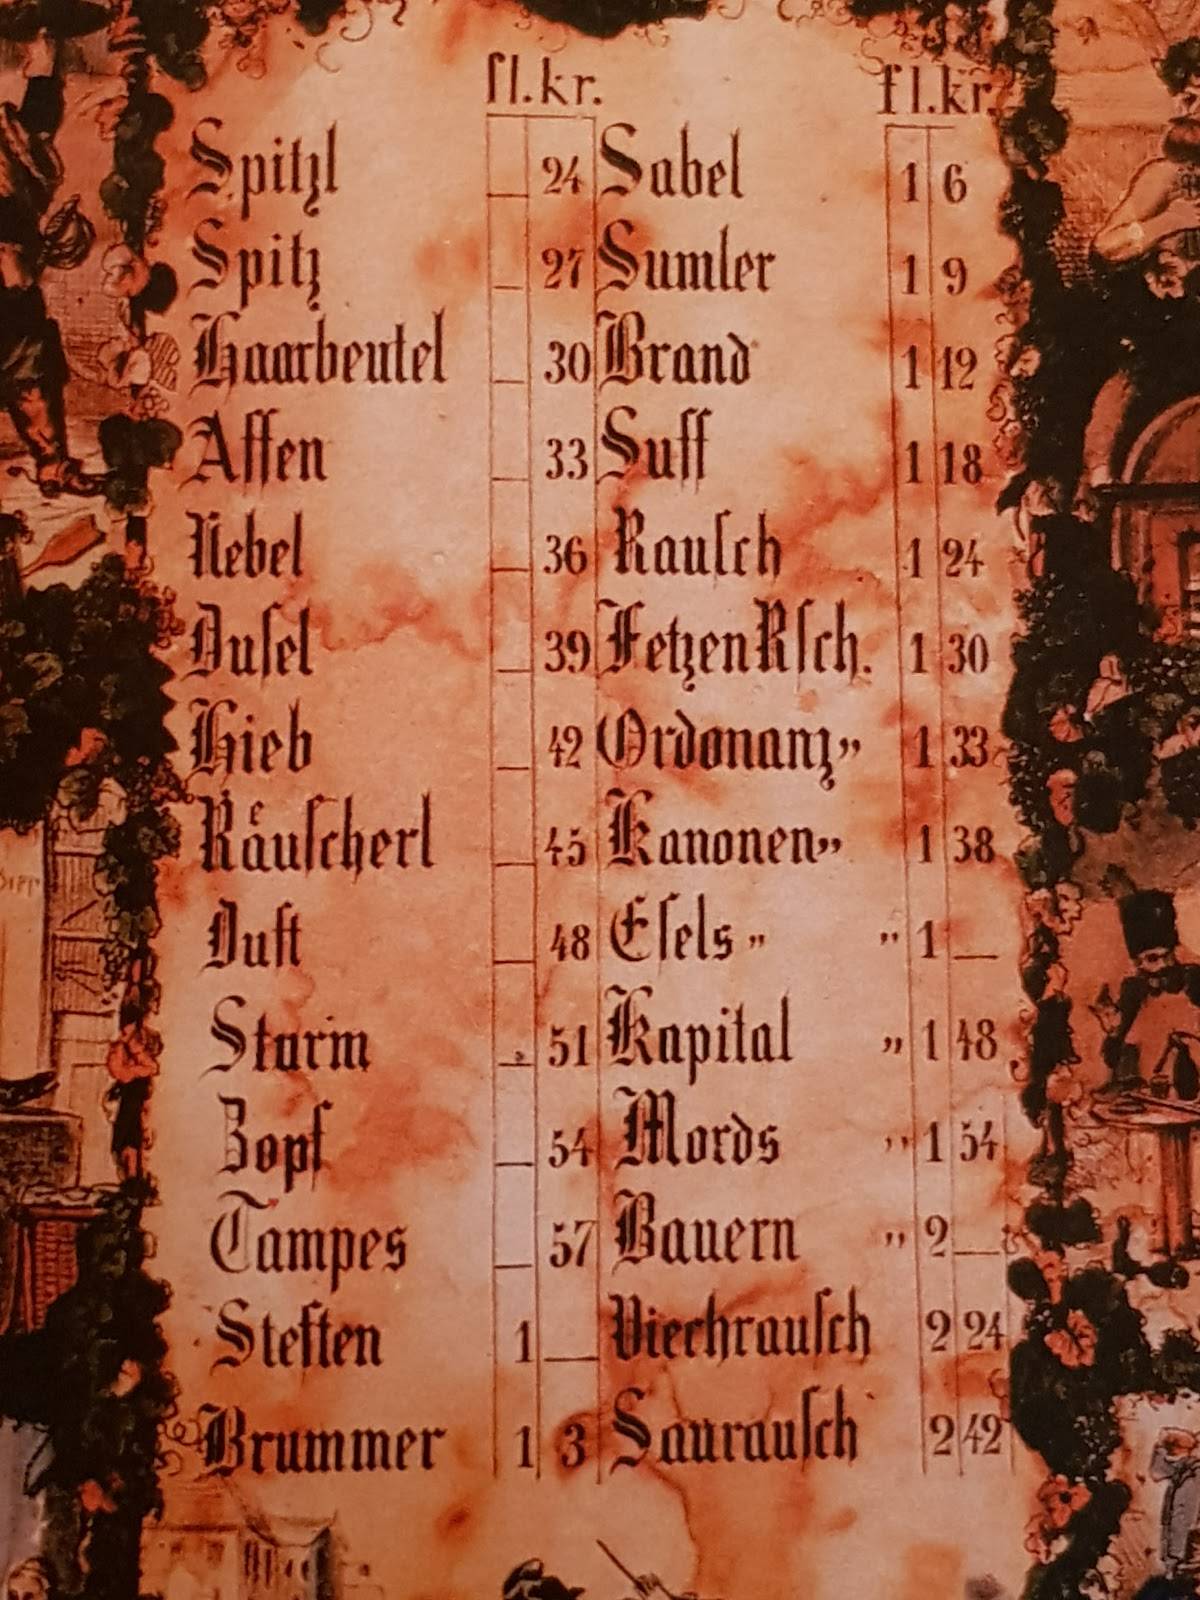 fl. kr.
Spitzl — 24
Spitz — 27
Haarbeutel — 30
Affen — 33
Nebel — 36
Dusel — 39
Hieb — 42
Räuscherl — 45
Dust — 48
Sturm — 51
Zopf — 54
Tampes — 57
Steften 1 —
Brummer 1 3
fl. kr.
Sabel 1 6
Sumler 1 9
Brand 1 12
Suff 1 18
Rausch 1 24
Fetzen Rsch. 1 30
Ordonanz „ 1 33
Kanonen „ 1 38
Esels „ „ 1 —
Kapital „ 1 48
Mords „ 1 54
Bauern „ 2 —
Viechrausch 2 24
Saurausch 2 42